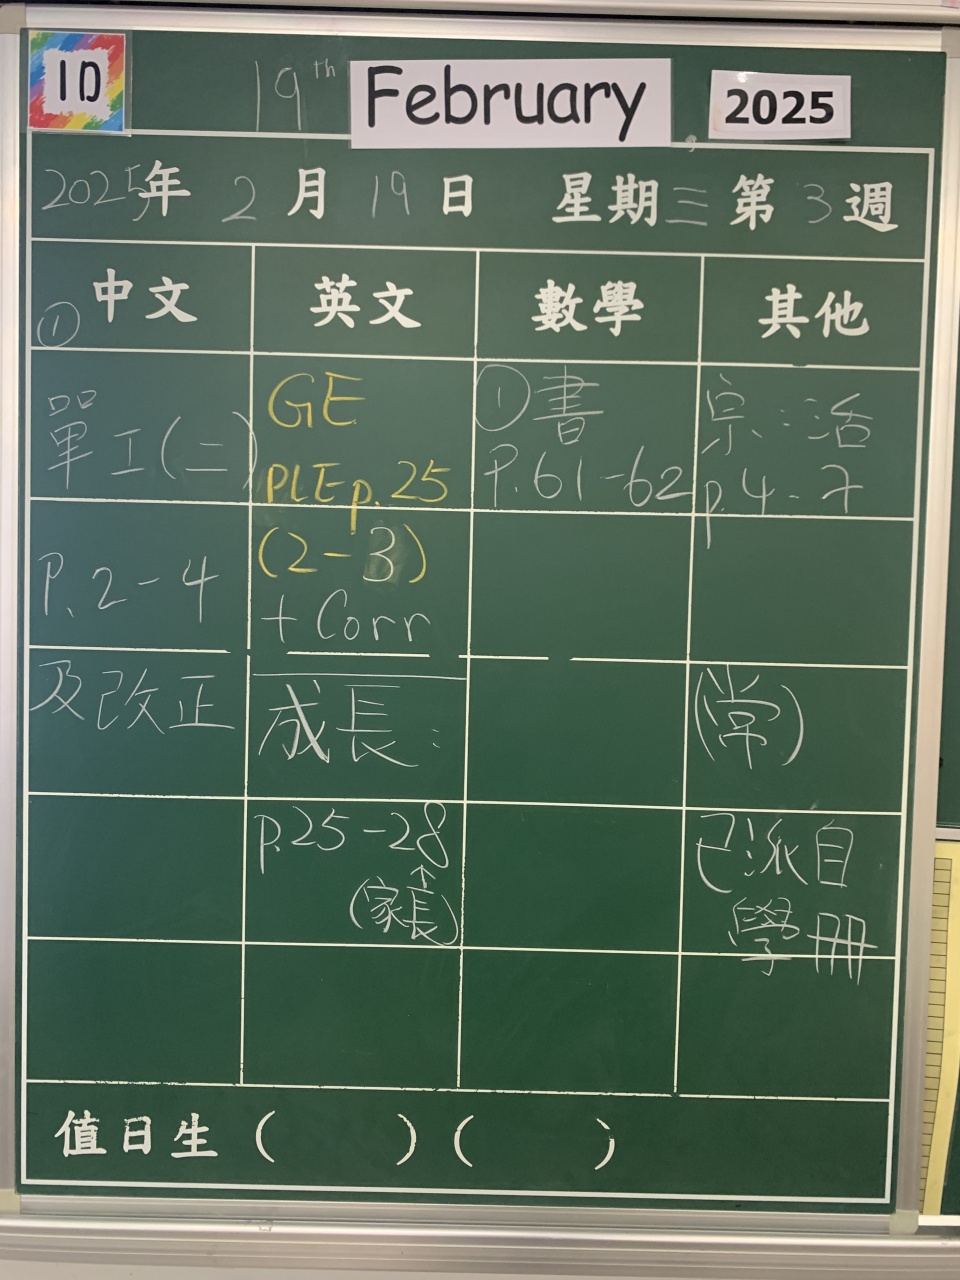 1D
19th February 2025
2025年 2月 19日 星期三 第3週
中文 英文 數學 其他
①
單工(二)
P.2-4
及改正
GE
PLE p.25
(2-3)
+ Corr
成長:
p.25-28
↑
(家長)
①書
P.61-62
宗:活
p.4-7
(常)
已派自
學冊
值日生 ( ) ( )